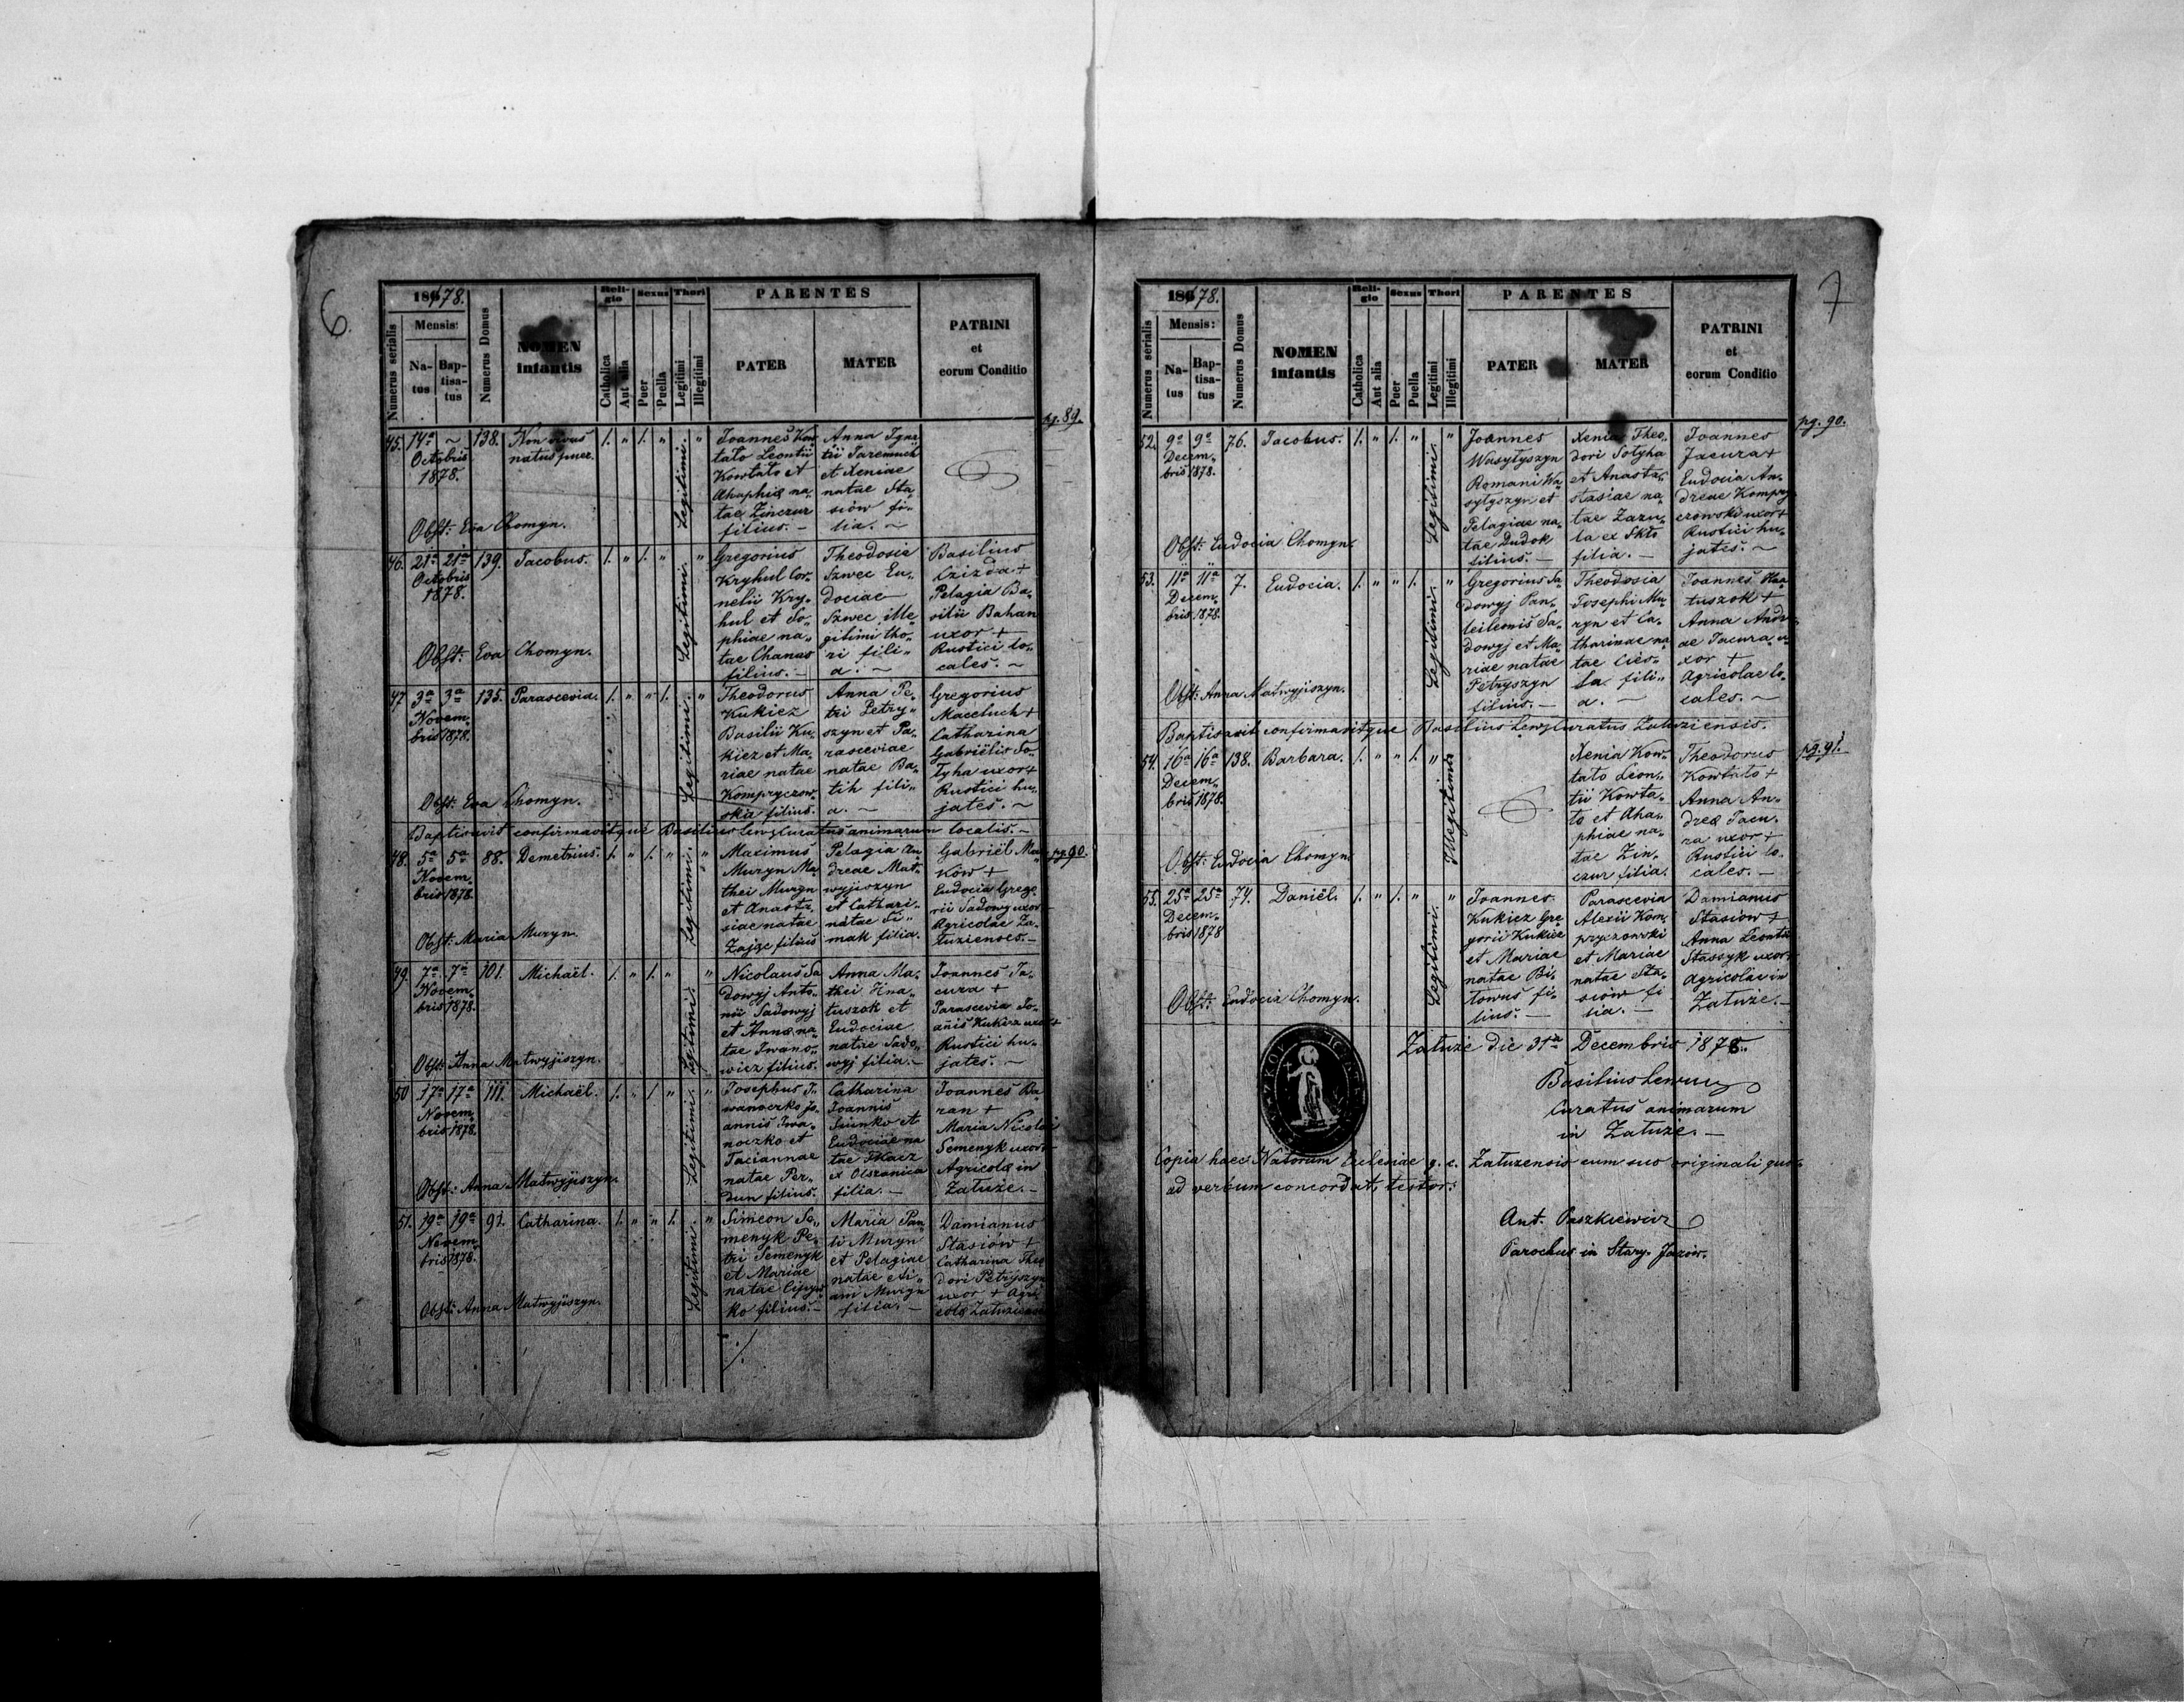 6.
1878.
Numerus serialis
Mensis:
Natus
Baptisatus
Numerus Domus
NOMEN infantis
Religio
Catholica
Aut alia
Sexus
Puer
Puella
Thori
Legitimi
Illegitimi
PARENTES
PATER
MATER
PATRINI
et
eorum Conditio
pg. 89.
45. 14a ~ Octobris 1878. 138.
Non vivus
natus puer.
Legitimi.
Joannes Kow„
tało Leontii
Kowtało et
Ahaphiæ na„
tae Zinczur
filius. –
Anna Igna„
tii Jaremuch
et Xeniae
natae Sta„
siów fi„
lia. ~
Obst: Eva Chomyn.
46. 21a 21a Octobris 1878. 139. Jacobus.
Legitimi.
Gregorius
Kryhul Cor„
nelii Kry„
hul et So„
phiae na„
tae Chanas
filius. –
Theodosia
Szwec Eu„
dociae
Szwec ille„
gitimi tho„
ri fili„
a. ~
Basilius
Czizda +
Pelagia Ba„
silii Bahan
uxor +
Rustici lo„
cales. ~
Obst: Eva Chomyn.
47. 3a 3a Novem„ bris 1878. 135. Parascevia.
Legitimi.
Theodorus
Kukiez
Basilii Ku„
kiez et Ma„
riae natae
Kompryczow„
skia filius.
Anna Pe„
tri Petry„
szyn et Pa„
rasceviae
natae Ba„
tih fili„
a. ~
Gregorius
Maceluch +
Catharina
Gabriëlis So
tyha uxor +
Rustici hu„
jates. ~
Obst: Eva Chomyn.
Baptisavit confirmavitque Basilius Lewy Curatus animarum localis. –
48. 5a 5a Novem„ bris 1878. 88. Demetrius.
pg. 90.
Legitimi.
Maximus
Muryn Ma„
thei Muryn
et Anasta„
siae natae
Zajac filius
Pelagia An
dreae Mat„
wyjiszyn
et Cathari„
natae Si„
mak filia.
Gabriël Ma„
ków +
Eudocia Grego
rii Sadowyj uxor
Agricolae Za„
łuzienses. –
Obst: Maria Muryn.
49. 7a 7a Novem„ bris 1878. 101. Michaël.
Legitimi.
Nicolaus Sa
dowyj Anto„
nii Sadowyj
et Annæ na„
tae Iwano„
wicz filius.
Anna Ma„
thei Hna„
tuszok et
Eudociae
natae Sado„
wyj filia. –
Joannes Ja„
cura +
Parascevia Jo„
anis Kukiz uxor +
Rustici hu„
jates. ~
Obst: Anna Matwyjiszyn.
50. 17a 17a Novem„ bris 1878. 111. Michaël.
Legitimi.
Josephus I„
wanoczko Jo„
annis Iwa„
noczko et
Taciannae
natae Per„
dun filius.
Catharina
Joannis
Siunko et
Eudociae na
tae Tkacz
ex Olszanica
filia. –
Joannes Ba„
ran +
Maria Nicolai
Semenyk uxor +
Agricolæ in
Załuże. –
Obst: Anna Matwyjiszyn.
51. 19a 19a Novem„ bris 1878. 91. Catharina.
Legitimi.
Simeon Se„
menyk Pe„
tri Semenyk
et Mariae
natae Cipyw
ko filius. –
Maria Pan
li Muryn
et Pelagiae
natae eti„
am Muryn
filia. –
Damianus
Stasiów +
Catharina Theo
dori Petryszyn
uxor + Agri
colæ Załuzienses
Obst: Anna Matwyjiszyn.
7
1878.
Numerus serialis
Mensis:
Natus
Baptisatus
Numerus Domus
NOMEN infantis
Religio
Catholica
Aut alia
Sexus
Puer
Puella
Thori
Legitimi
Illegitimi
PARENTES
PATER
MATER
PATRINI
et
eorum Conditio
pg. 90.
52. 9a 9a Decem„ bris 1878. 76. Jacobus.
Legitimi.
Joannes
Wasyłyszyn
Romani Wa
syłyszyn et
Pelagiae na„
tae Dudok
filius. –
Xenia Theo„
dori Sotyha
et Anasta„
stasiae na„
tae Zazu„
la ex Skło
filia. –
Joannes
Jacura +
Eudocia An„
dreae Kompry
czowski uxor +
Rustici hu„
jates. ~
Obst: Eudocia Chomyn.
53. 11a 11a Decem„ bris 1878. 7. Eudocia.
Legitimi.
Gregorius Sa„
dowyj Pan„
teileonis Sa„
dowyj et Ma„
riae natae
Petryszyn
filius. –
Theodosia
Josephi Mu„
ryn et Ca„
tharinae na
tae Cies„
la fili„
a. –
Joannes Hna
tuszok +
Anna Andre
ae Jacura u
xor +
Agricolae lo„
cales. ~
Obst: Anna Matwyjiszyn.
Baptisavit confirmavitque Basilius Lewy Curatus Załuziensis.
54. 16a 16a Decem„ bris 1878. 138. Barbara.
pg. 91.
Illegitimi
Xenia Kow„
tało Leon„
tii Kowta„
ło et Aha„
phiae na„
tae Zin„
czur filia.
Theodorus
Kowtało +
Anna An„
dreæ Jacu„
ra uxor +
Rustici lo„
cales. –
Obst: Eudocia Chomyn.
55. 25a 25a Decem„ bris 1878 74. Daniël.
Legitimi.
Joannes
Kukiez Gre
gorii Kukiez
et Mariae
natae Bi„
łowus fi„
lius. –
Parascevia
Alexii Kom„
pryczowski
et Mariae
natae Sta„
siów fi
lia. –
Damianus
Stasiow +
Anna Leontii
Stassyk uxor +
Agricolae in
Załuże. –
Obst: Eudocia Chomyn.
Załuże die 31a Decembris 1878.
Basilius Lewy
Curatus animarum
in Załuże. –
Copia haec Natorum Ecclesiae g. c. Załuzensis cum suo originali quoad
ad verbum concordat, testor:
Ant. Paszkiewicz
Parochus in Stary Jazów.